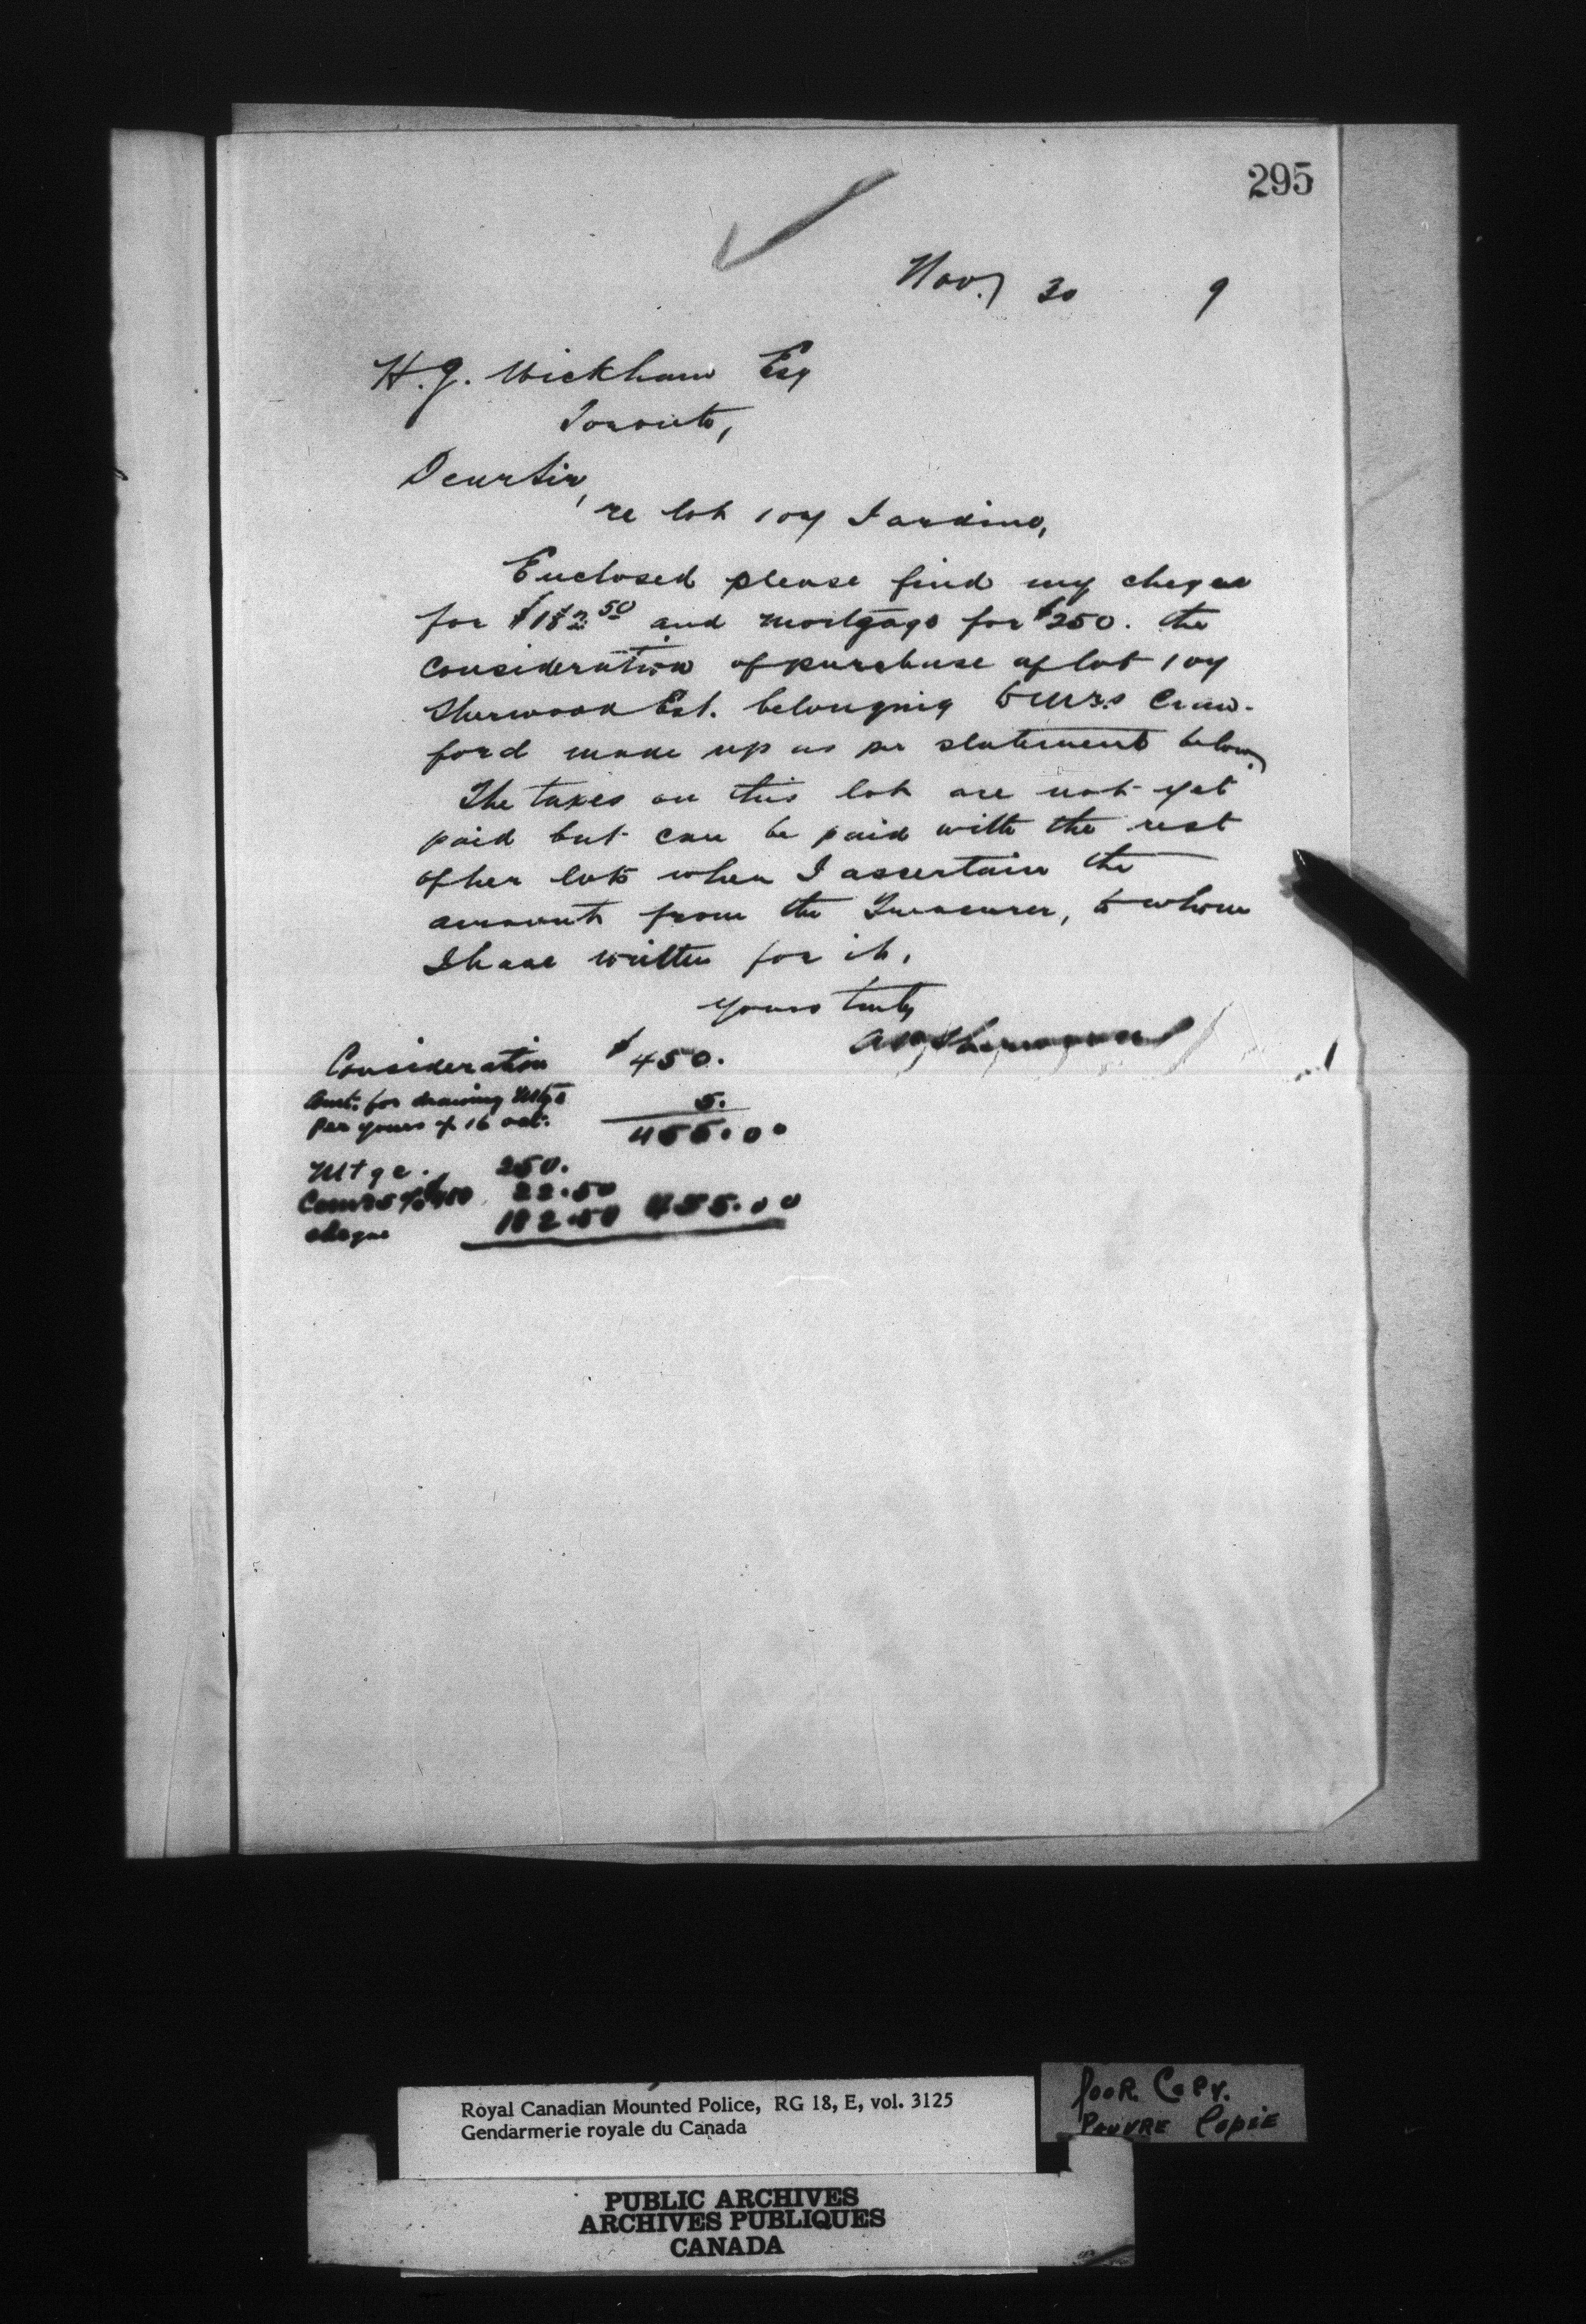 295
Nov. 30 9
H. J. Wickham Esq
Toronto,
Dear Sir,
re lot 109 Jardine,
Enclosed please find my cheque
for $182.50 and mortgage for $250. the
consideration of purchase of lot 109
Sherwood Est. belonging to Mrs Craw-
ford made up as per statement below
The taxes on this lot are not yet
paid but can be paid with the rest
of her lots when I ascertain the
amount from the Treasurer, to whom
I have written for it.
Yours truly
Sherwood
Consideration $450.
Amt. for drawing Mtge 5.
Per yours of 16 Oct. 455.00
Mtge. 250.
Comm 5% $450 22.50
cheque 182.50 455.00
Royal Canadian Mounted Police, RG 18, E, vol. 3125
Gendarmerie royale du Canada
Poor Copy.
Pauvre Copie
PUBLIC ARCHIVES
ARCHIVES PUBLIQUES
CANADA